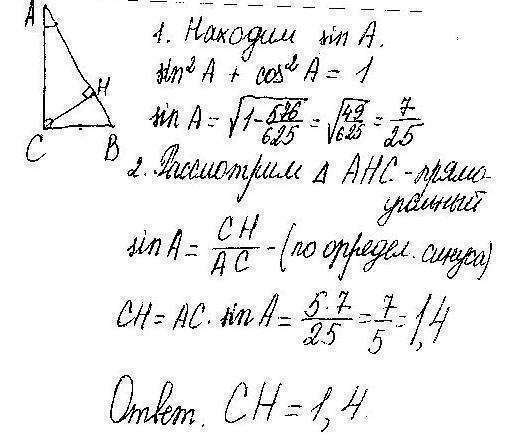 A
H
C B
1. Находим sin A.
sin² A + cos² A = 1
sin A = √(1 - 576/625) = √(49/625) = 7/25
2. Рассмотрим Δ AHC - прямо-
угольный
sin A = CH/AC - (по определ. синуса)
CH = AC · sin A = 5·7/25 = 7/5 = 1,4
Ответ. CH = 1,4.